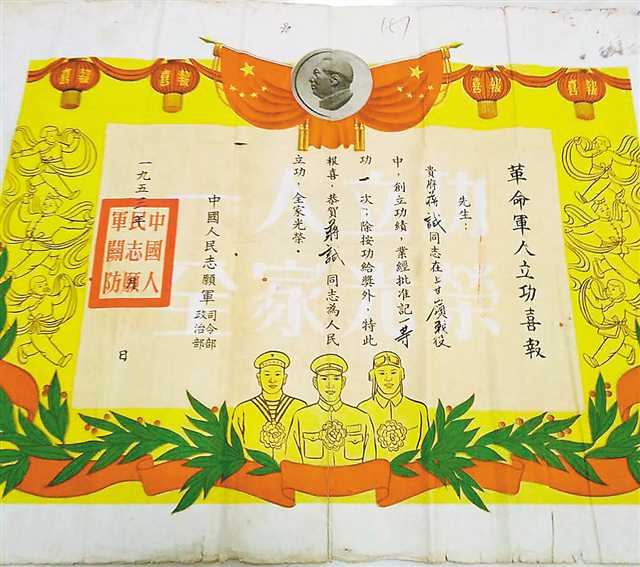 喜報
喜報
革命軍人立功喜報
先生：
貴府蔣誠同志在上甘嶺戰役
中，創立功績，業經批准記一等
功一次；除按功給獎外，特此
報喜，恭賀蔣誠同志為人民
立功，全家光榮。
中國人民志願軍司令部
政治部
一九五 日
中國人
民志願
軍關防
一人立功
全家光榮